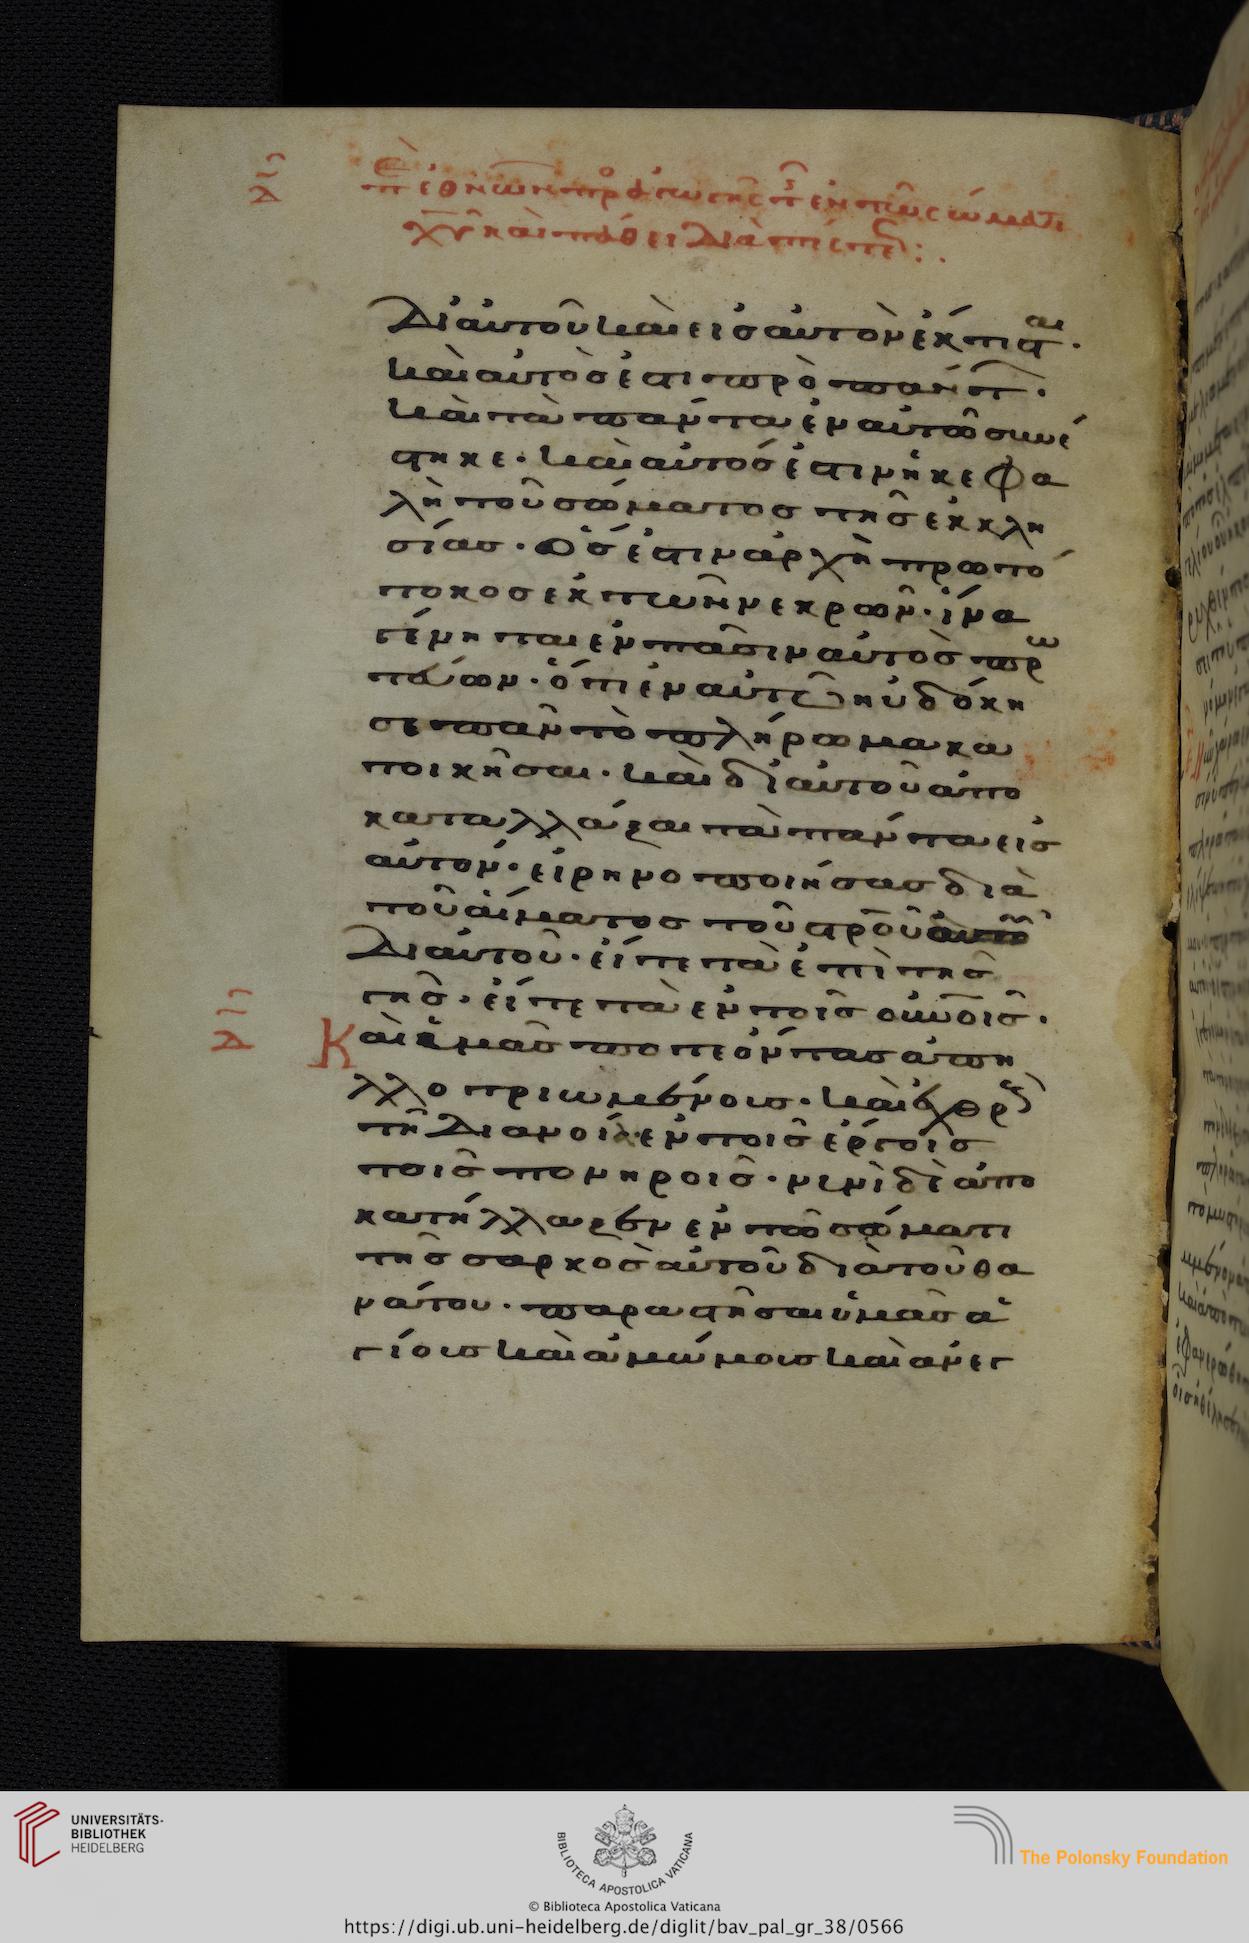 δι αὐτοῦ καὶ εἰς αὐτὸν ἔκτισται·
καὶ αὐτὸς ἐστι πρὸ πάντ·
καὶ τὰ πάντα ἐν αὐτῶ συνέ
στηκε· καὶ αὐτός ἐστιν ἡ κεφα
λὴ τοῦ σώματος τῆς ἐκκλη
σίας· ὅς ἐστιν ἀρχὴ πρωτό
τοκος ἐκ τῶν νεκρῶν· ἵνα
γένηται ἐν πᾶσιν αὐτὸς πρω
τεύων· ὅτι ἐν αὐτῶ ηὐδόκη
σε πᾶν τὸ πλήρωμα κα
τοικῆσαι· καὶ δι αὐτοῦ ἀπο
καταλλάξαι τὰ πάντα εἰς
αὐτόν· εἰρηνοποιήσας διὰ
τοῦ αἵματος τοῦ στροῦ αὐτοῦ
δι αὐτοῦ· εἴτε τὰ ἐπὶ τῆς
γῆς· εἴτε τὰ ἐν τοῖς οὐνοῖς·
Καὶ ὑμᾶς ποτὲ ὄντας ἀπη
λλοτριωμένοις· καὶ ἐχθρ
τῆ διανοία· ἐν τοῖς ἔργοις
τοῖς πονηροῖς· νυνὶ δὲ ἀπο
κατήλλαξεν ἐν τῶ σώματι
τῆς σαρκὸς αὐτοῦ διὰ τοῦ θα
νάτου· παραστῆσαι ὑμᾶς ἁ
γίοις καὶ ἀμώμοις καὶ ἀνεγ
UNIVERSITÄTS-
BIBLIOTHEK
HEIDELBERG
BIBLIOTECA APOSTOLICA VATICANA
The Polonsky Foundation
© Biblioteca Apostolica Vaticana
https://digi.ub.uni-heidelberg.de/diglit/bav_pal_gr_38/0566